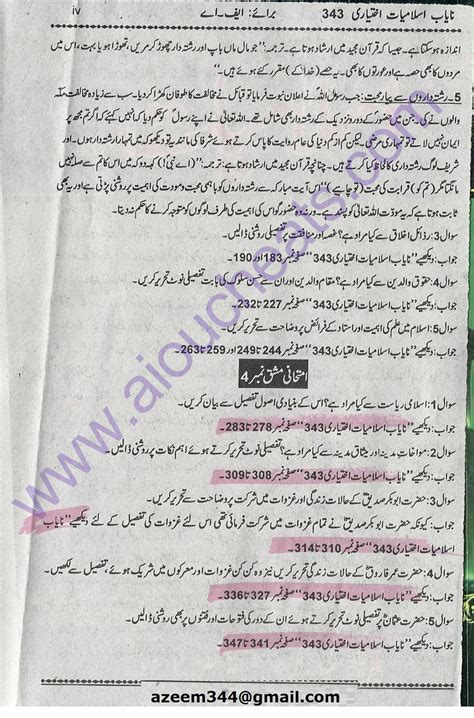 نایاب اسلامیات اختیاری 343 برائے: ایف۔اے iv
اندازہ ہو سکتا ہے۔ جیسا کہ قرآن مجید میں ارشاد ہوتا ہے۔ ترجمہ: ’’جو مال ماں باپ اور رشتہ دار چھوڑ مریں، تھوڑا ہو یا بہت، اس میں
مردوں کا بھی حصہ ہے اور عورتوں کا بھی۔ یہ حصے (خدا کے) مقرر کئے ہوئے ہیں۔‘‘
5۔ رشتہ داروں سے پیار محبت: جب رسول اللہؐ نے اعلان نبوت فرمایا تو قبائل نے مخالفت کا طوفان کھڑا کر دیا۔ سب سے زیادہ مخالفت مکہ
والوں نے کی۔ جن میں حضورؐ کے دور و نزدیک کے رشتہ دار بھی شامل تھے۔ اللہ تعالیٰ نے اپنے رسولؐ کو حکم دیا کہ انہیں کہنا کہ اگر تم مجھ پر
ایمان نہیں لاتے تو تمہاری مرضی۔ لیکن کم از کم دنیا کی عام روایت کا پاس کرتے ہوئے شرفا کی مانند یہ تو دیکھو کہ میں تمہارا رشتہ دار ہوں۔ اور
شریف لوگ رشتہ داری کا لحاظ کیا کرتے ہیں۔ چنانچہ قرآن مجید میں ارشاد ہوتا ہے۔ ترجمہ: ’’(اے نبیؐ!) کہہ دو کہ میں اس کا تم سے صلہ نہیں
مانگتا مگر (تم کو) قرابت کی محبت (تو چاہیے)‘‘ اس آیت مبارکہ سے رشتہ داروں کو باہمی محبت و مودت کی اہمیت پر روشنی پڑتی ہے اور یہ بھی
ثابت ہوتا ہے کہ یہ مودت اللہ تعالیٰ کو پسند ہے۔ ورنہ وہ حضورؐ کو اس کی اہمیت کی طرف لوگوں کو متوجہ کرنے کا حکم نہ دیتا۔
سوال 3: رذائل اخلاق سے کیا مراد ہے؟ غصہ اور منافقت پر تفصیلی روشنی ڈالیں۔
جواب: دیکھیے ’’نایاب اسلامیات اختیاری 343‘‘ صفحہ نمبر 183 اور 190۔
سوال 4: حقوق والدین سے کیا مراد ہے؟ مقام والدین اور ان سے حسن سلوک کی بابت تفصیلی نوٹ تحریر کریں۔
جواب: دیکھیے ’’نایاب اسلامیات اختیاری 343‘‘ صفحہ نمبر 227 تا 232۔
سوال 5: اسلام میں علم کی اہمیت اور استاد کے فرائض پر وضاحت سے تحریر کریں۔
جواب: دیکھیے ’’نایاب اسلامیات اختیاری 343‘‘ صفحہ نمبر 244 تا 249 اور 259 تا 263۔
امتحانی مشق نمبر 4
سوال 1: اسلامی ریاست سے کیا مراد ہے؟ اس کے بنیادی اصول تفصیل سے بیان کریں۔
جواب: دیکھیے ’’نایاب اسلامیات اختیاری 343‘‘ صفحہ نمبر 278 تا 283۔
سوال 2: مواخات مدینہ اور میثاق مدینہ سے کیا مراد ہے؟ تفصیلی نوٹ تحریر کرتے ہوئے اہم نکات پر روشنی ڈالیں۔
جواب: دیکھیے ’’نایاب اسلامیات اختیاری 343‘‘ صفحہ نمبر 308 تا 309۔
سوال 3: حضرت ابوبکر صدیقؓ کے حالات زندگی اور غزوات میں شرکت پر وضاحت سے تحریر کریں۔
جواب: کیونکہ حضرت ابوبکر صدیقؓ نے تمام غزوات میں شرکت فرمائی تھی اس لئے غزوات کی تفصیل کے لئے دیکھیے ’’نایاب
اسلامیات اختیاری 343‘‘ صفحہ نمبر 310 تا 314۔
سوال 4: حضرت عمر فاروقؓ کے حالات زندگی تحریر کریں نیز وہ کن کن غزوات اور معرکوں میں شریک ہوئے، تفصیل سے لکھیں۔
جواب: دیکھیے ’’نایاب اسلامیات اختیاری 343‘‘ صفحہ نمبر 327 تا 336۔
سوال 5: حضرت عثمانؓ پر تفصیلی نوٹ تحریر کرتے ہوئے ان کے دور کی فتوحات اور فتنوں پر بھی روشنی ڈالیں۔
جواب: دیکھیے ’’نایاب اسلامیات اختیاری 343‘‘ صفحہ نمبر 341 تا 347۔
www.aioucheats.com
azeem344@gmail.com